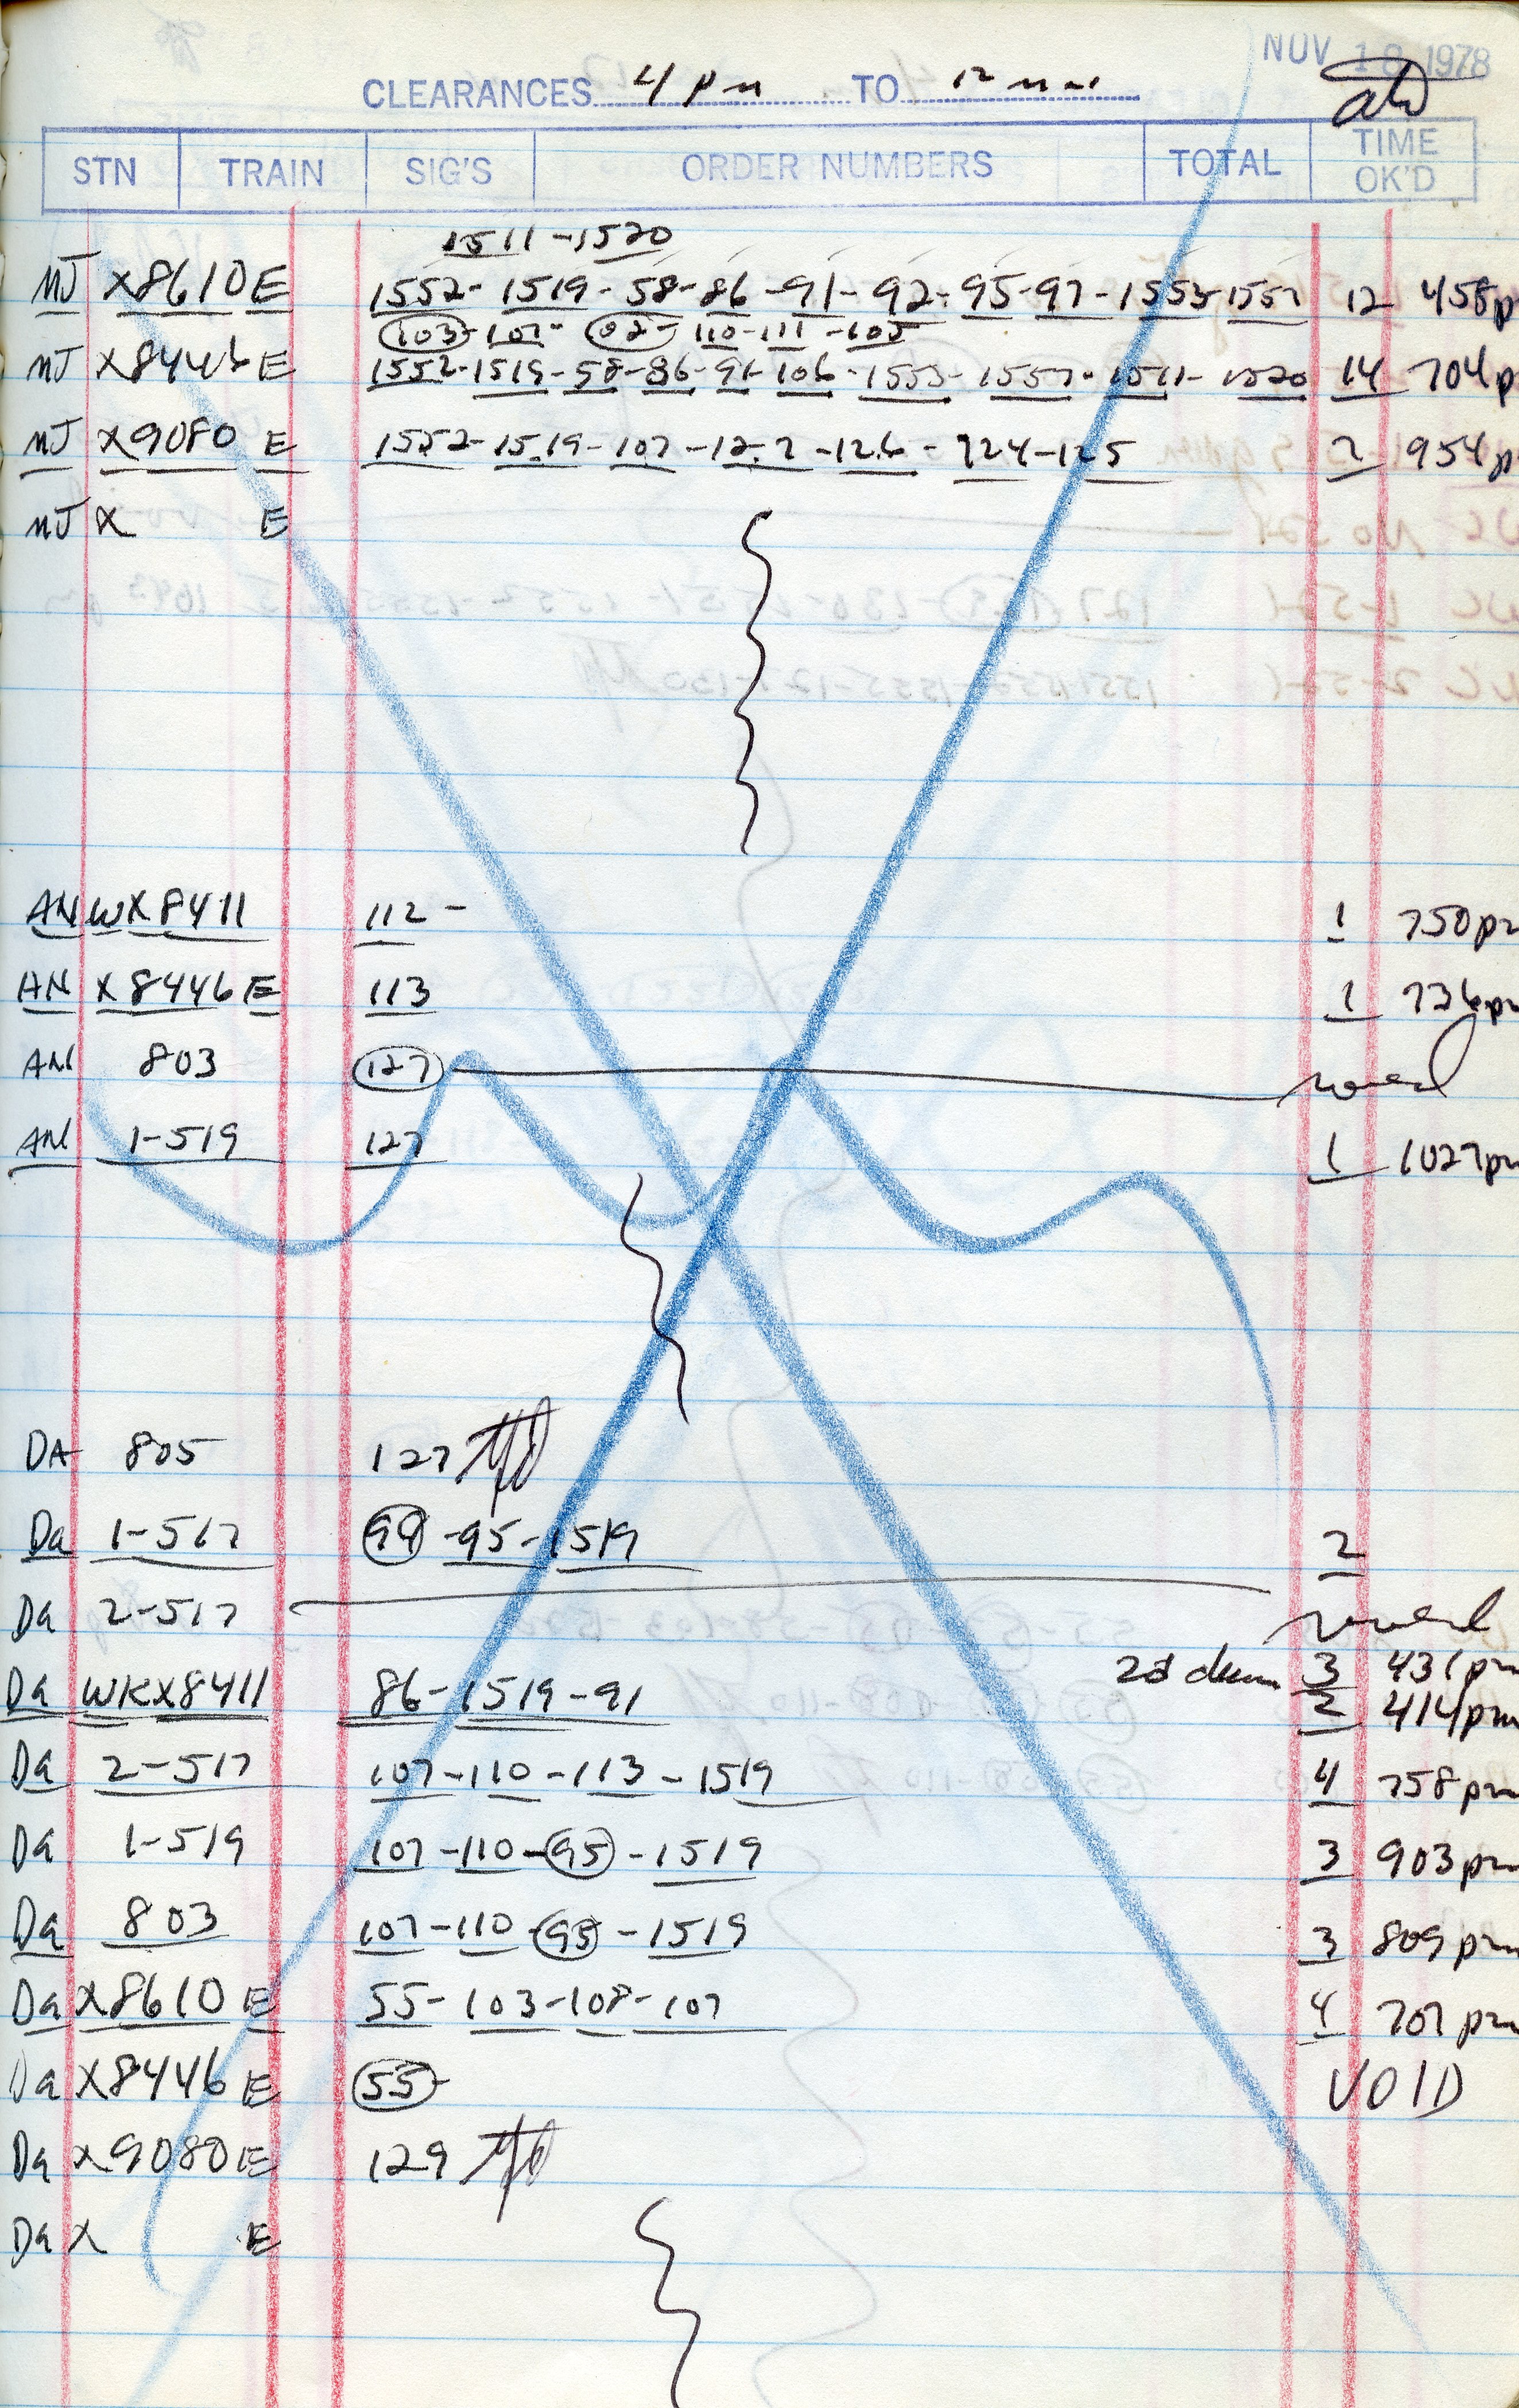 NOV 18 1978
CLEARANCES 4 pm TO 12 mn
STN TRAIN SIG'S ORDER NUMBERS TOTAL TIME OK'D
1511-1520
MJ X8610E 1552-1519-58-86-91-92-95-97-1553-1557 12 458p
103-107-02-110-111-105
MJ X8446E 1552-1519-58-86-91-106-1553-1557-1511-1520 14 704p
MJ X9080 E 1552-1519-107-122-126-124-125 7 954p
MJ X E
AN WX8411 112- 1 750pm
AN X8446E 113 1 736pm
AN 803 127
AN 1-519 127 1 1027pm
DA 805 127
Da 1-517 94-95-1519 2
Da 2-517
3 431pm
Da WKX8411 86-1519-91 2 414pm
Da 2-517 107-110-113-1519 4 758pm
Da 1-519 107-110-95-1519 3 903pm
Da 803 107-110-95-1519 3 809pm
Da X8610 E 55-103-108-107 4 707pm
Da X8446 E 55- VOID
Da X9080 E 129
Da X E